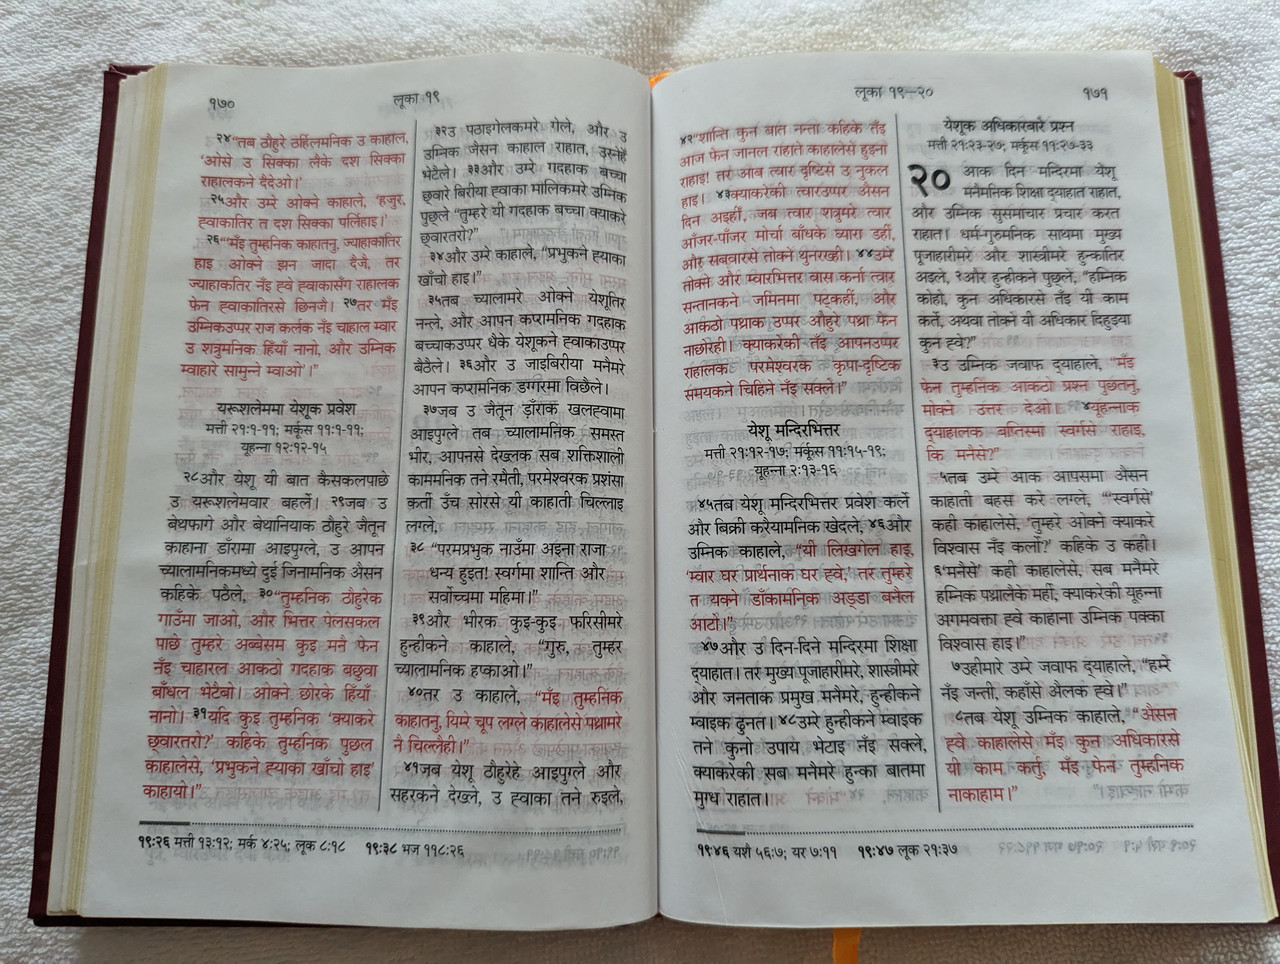 १७०
लूका १९
२४“तब ठौहुरे ठर्हिलमनिक उ काहाल,
‘ओसे उ सिक्का लैके दश सिक्का
राहालकने दैदेओ।’
२५और उम्रे ओक्ने काहाले, ‘हजुर,
ह्वाकातिर त दश सिक्का पलिंहाइ।’
२६“‘मँइ तुम्हनिक काहातनु, ज्याहाकातिर
हाइ ओक्ने झन जादा दैजै, तर
ज्याहाकतिर नँइ ह्वे ह्वाकासँग राहालक
फेन ह्वाकातिरसे छिनजे। २७तर मँइ
उम्निकउप्पर राज कर्लक नँइ चाहाल म्वार
उ शत्रुमनिक हिँयाँ नानो, और उम्निक
म्वाहारे सामुन्ने म्वाओ’।”
यरूशलेममा येशूक प्रवेश
मत्ती २१:१-११; मर्कूस ११:१-११;
यूहन्ना १२:१२-१५
२८और येशू यी बात कैसकलपाछे
उ यरूशलेमवार बहलें। २९जब उ
बेथफागे और बेथानियाक ठौहुरे जैतून
काहाना डाँरामा आइपुग्ले, उ आपन
च्यालामनिकमध्ये दुई जिनामनिक औसन
कहिके पठैले, ३०“तुम्हनिक ठौहुरेक
गाउँमा जाओ, और भित्तर पेलसकल
पाछे तुम्हरे अब्बेसम कुइ मनै फेन
नँइ चाहारल आकठो गदहाक बछुवा
बाँधल भेटेबो। ओक्ने छोरके हिँयाँ
नानो। ३१यदि कुइ तुम्हनिक ‘क्याकरे
छ्वारतरो?’ कहिके तुम्हनिक पुछल
काहालेसे, ‘प्रभुकने ह्याका खाँचो हाइ’
काहायो।”
३२उ पठाइगेलकमरे गेले, और उ
उम्निक जैसन काहाल राहात, उस्नेहें
भेटैले। ३३और उम्रे गदहाक बच्चा
छ्वारे बिरीया ह्वाका मालिकमरे उम्निक
पुछ्ले “तुम्हरे यी गदहाक बच्चा क्याकरे
छ्वारतरो?”
३४और उम्रे काहाले, “प्रभुकने ह्याका
खाँचो हाइ।”
३५तब च्यालामरे ओक्ने येशूतिर
नन्ले, और आपन कप्रामनिक गदहाक
बच्चाकउप्पर धैके येशूकने ह्वाकाउप्पर
बैठैले। ३६और उ जाइबिरीया मनैमरे
आपन कप्रामनिक डगरिमा बिछैले।
३७जब उ जैतून डाँराक खलह्वामा
आइपुग्ले तब च्यालामनिक समस्त
भीर, आपनसे देख्लक सब शक्तिशाली
काममनिक तने रमैती, परमेश्वरक प्रशंसा
कर्ती उँच सोरसे यी काहाती चिल्लाइ
लग्ले,
३८ “परमप्रभुक नाउँमा अइना राजा
धन्य हुइत! स्वर्गमा शान्ति और
सर्वोच्चमा महिमा।”
३९और भीरक कुइ-कुइ फरिसीमरे
हुन्हीकने काहाले, “गुरु, तुम्हर
च्यालामनिक हप्काओ।”
४०तर उ काहाले, “मँइ तुम्हनिक
काहातनु, यिम्रे चूप लग्ले काहालेसे पथ्रामरे
नै चिल्लैही।”
४१जब येशू ठौहुरेहे आइपुग्ले और
सहरकने देख्ले, उ ह्वाका तने रुइले,
१९:२६ मत्ती १३:१२; मर्क ४:२५; लूक ८:१८ १९:३८ भज ११८:२६
लूका १९—२०
१७१
४२“शान्ति कुन बात नन्ता कहिके तँइ
आज फेन जानल राहाते काहालेसे हुइना
राहाइ! तर आब त्वार दृष्टिसे उ नुकल
हाइ। ४३क्याकरेकी त्वारउप्पर औसन
दिन अइहीं, जब त्वार शत्रुमरे त्वार
आँजर-पाँजर मोर्चा बाँधके घ्यारा डहीं,
और सबवारसे तोक्ने थुनरख्ही। ४४उम्रे
तोक्ने और म्वारभित्तर बास कर्ना त्वार
सन्तानकने जमिनमा पट्कहीं, और
आकठो पथ्राक उप्पर औहुरे पथ्रा फेन
नाछोरेही। क्याकरेकी तँइ आपनउप्पर
राहालक परमेश्वरक कृपा-दृष्टिक
समयकने चिहिने नँइ सक्ले।”
येशू मन्दिरभित्तर
मत्ती २१:१२-१७; मर्कूस ११:१५-१९;
यूहन्ना २:१३-१६
४५तब येशू मन्दिरभित्तर प्रवेश कर्ले
और बिक्री करैयामनिक खेदले, ४६और
उम्निक काहाले, “यी लिखगेल हाइ,
‘म्वार घर प्रार्थनाक घर ह्वे,’ तर तुम्हरे
त यक्ने डाँकामनिक अड्डा बनैल
आटो।”
४७और उ दिन-दिने मन्दिरमा शिक्षा
द्याहात। तर मुख्य पूजाहारीमरे, शास्त्रीमरे
और जनताक प्रमुख मनैमरे, हुन्हीकने
म्वाइक ढुनत। ४८उम्रे हुन्हीकने म्वाइक
तने कुनो उपाय भेटाइ नँइ सक्ले,
क्याकरेकी सब मनैमरे हुन्का बातमा
मुग्ध राहात।
येशूक अधिकारबारे प्रश्न
मत्ती २१:२३-२७; मर्कूस ११:२७-३३
२० आक दिन मन्दिरमा येशू
मनैमनिक शिक्षा द्याहात राहात,
और उम्निक सुसमाचार प्रचार करत
राहात। धर्म-गुरुमनिक साथमा मुख्य
पूजाहारीमरे और शास्त्रीमरे हुन्कातिर
अइले, २और हुन्हीकने पुछ्ले, “हम्निक
कोहो, कुन अधिकारसे तँइ यी काम
कर्ते, अथवा तोक्ने यी अधिकार दिहुइया
कुन ह्वे?”
३उ उम्निक जवाफ द्याहाले, “मँइ
फेन तुम्हनिक आकठो प्रश्न पुछतनु,
मोक्ने उत्तर देओ। ४यूहन्नाक
द्याहालक बप्तिस्मा स्वर्गसे राहाइ,
कि मनैसे?”
५तब उम्रे आक आपसमा औसन
काहाती बहस करे लग्ले, “‘स्वर्गसे’
कही काहालेसे, ‘तुम्हरे ओक्ने क्याकरे
विश्वास नँइ कर्लो?’ कहिके उ कही।
६‘मनैसे’ कही काहालेसे, सब मनैमरे
हम्निक पथ्रालेके मही, क्याकरेकी यूहन्ना
अगमवक्ता ह्वे काहाना उम्निक पक्का
विश्वास हाइ।”
७उहीमारे उम्रे जवाफ द्याहाले, “हम्रें
नँइ जन्ती, कहाँसे औलक ह्वे।”
८तब येशू उम्निक काहाले, “औसन
ह्वे काहालेसे मँइ कुन अधिकारसे
यी काम कर्तु, मँइ फेन तुम्हनिक
नाकाहाम।”
१९:४६ यशै ५६:७; यर ७:११ १९:४७ लूक २१:३७